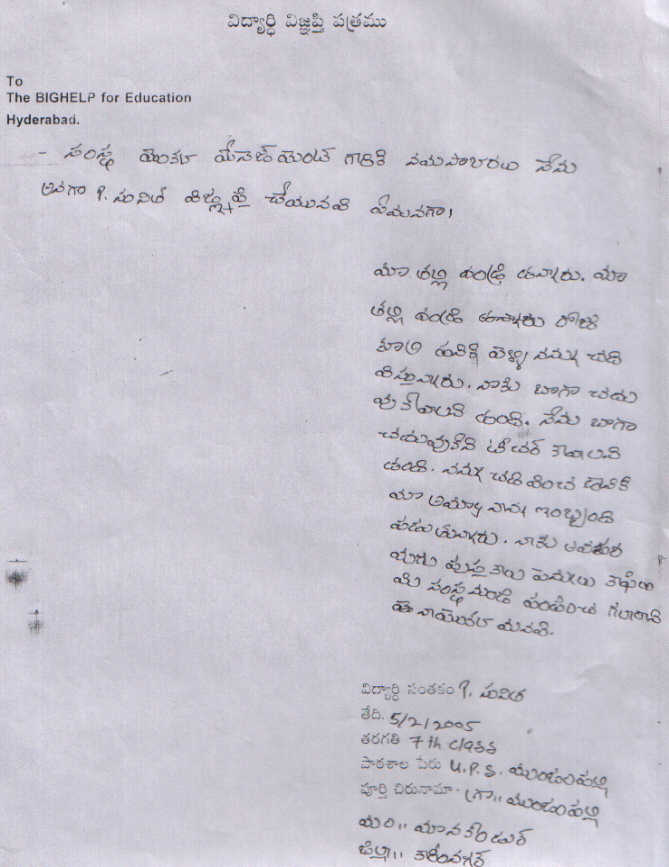 విద్యార్ధి విజ్ఞప్తి పత్రము
To
The BIGHELP for Education
Hyderabad.
- సంస్థ యొకటి మేనేజ్ మెంట్ గారికి నమస్కారములు నేను
అనగా P. సునిత విజ్ఞప్తి చేయునది ఏమనగా,
మా తల్లి తండ్రి ఉన్నారు. మా
తల్లి తండ్రి ఉన్నారు రోజు
కూలి పనికి వెళ్ళి నన్ను చది
విస్తున్నారు. నాకు బాగా చదు
వుకోవాలని ఉంది. నేను బాగా
చదువుకొని టీచర్ కావాలని
ఉంది. నన్ను చదివించ డానికి
మా అమ్మ నాన్న ఇబ్బంది
పడుతున్నారు. నాకు అవసర
మగు పుస్తకాలు పెన్నులు కాపీలు
మీ సంస్థ నుండి పంపించ గలరాని
నాయొక్క మనవి.
విద్యార్ధి సంతకం P. సునిత
తేది. 5/2/2005
తరగతి 7th class
పాఠశాల పేరు U.P.S. ముంజంపల్లి
పూర్తి చిరునామా - గ్రా,, ముంజంపల్లి
మం,, మానకొండూర్
జిల్లా,, కరీంనగర్